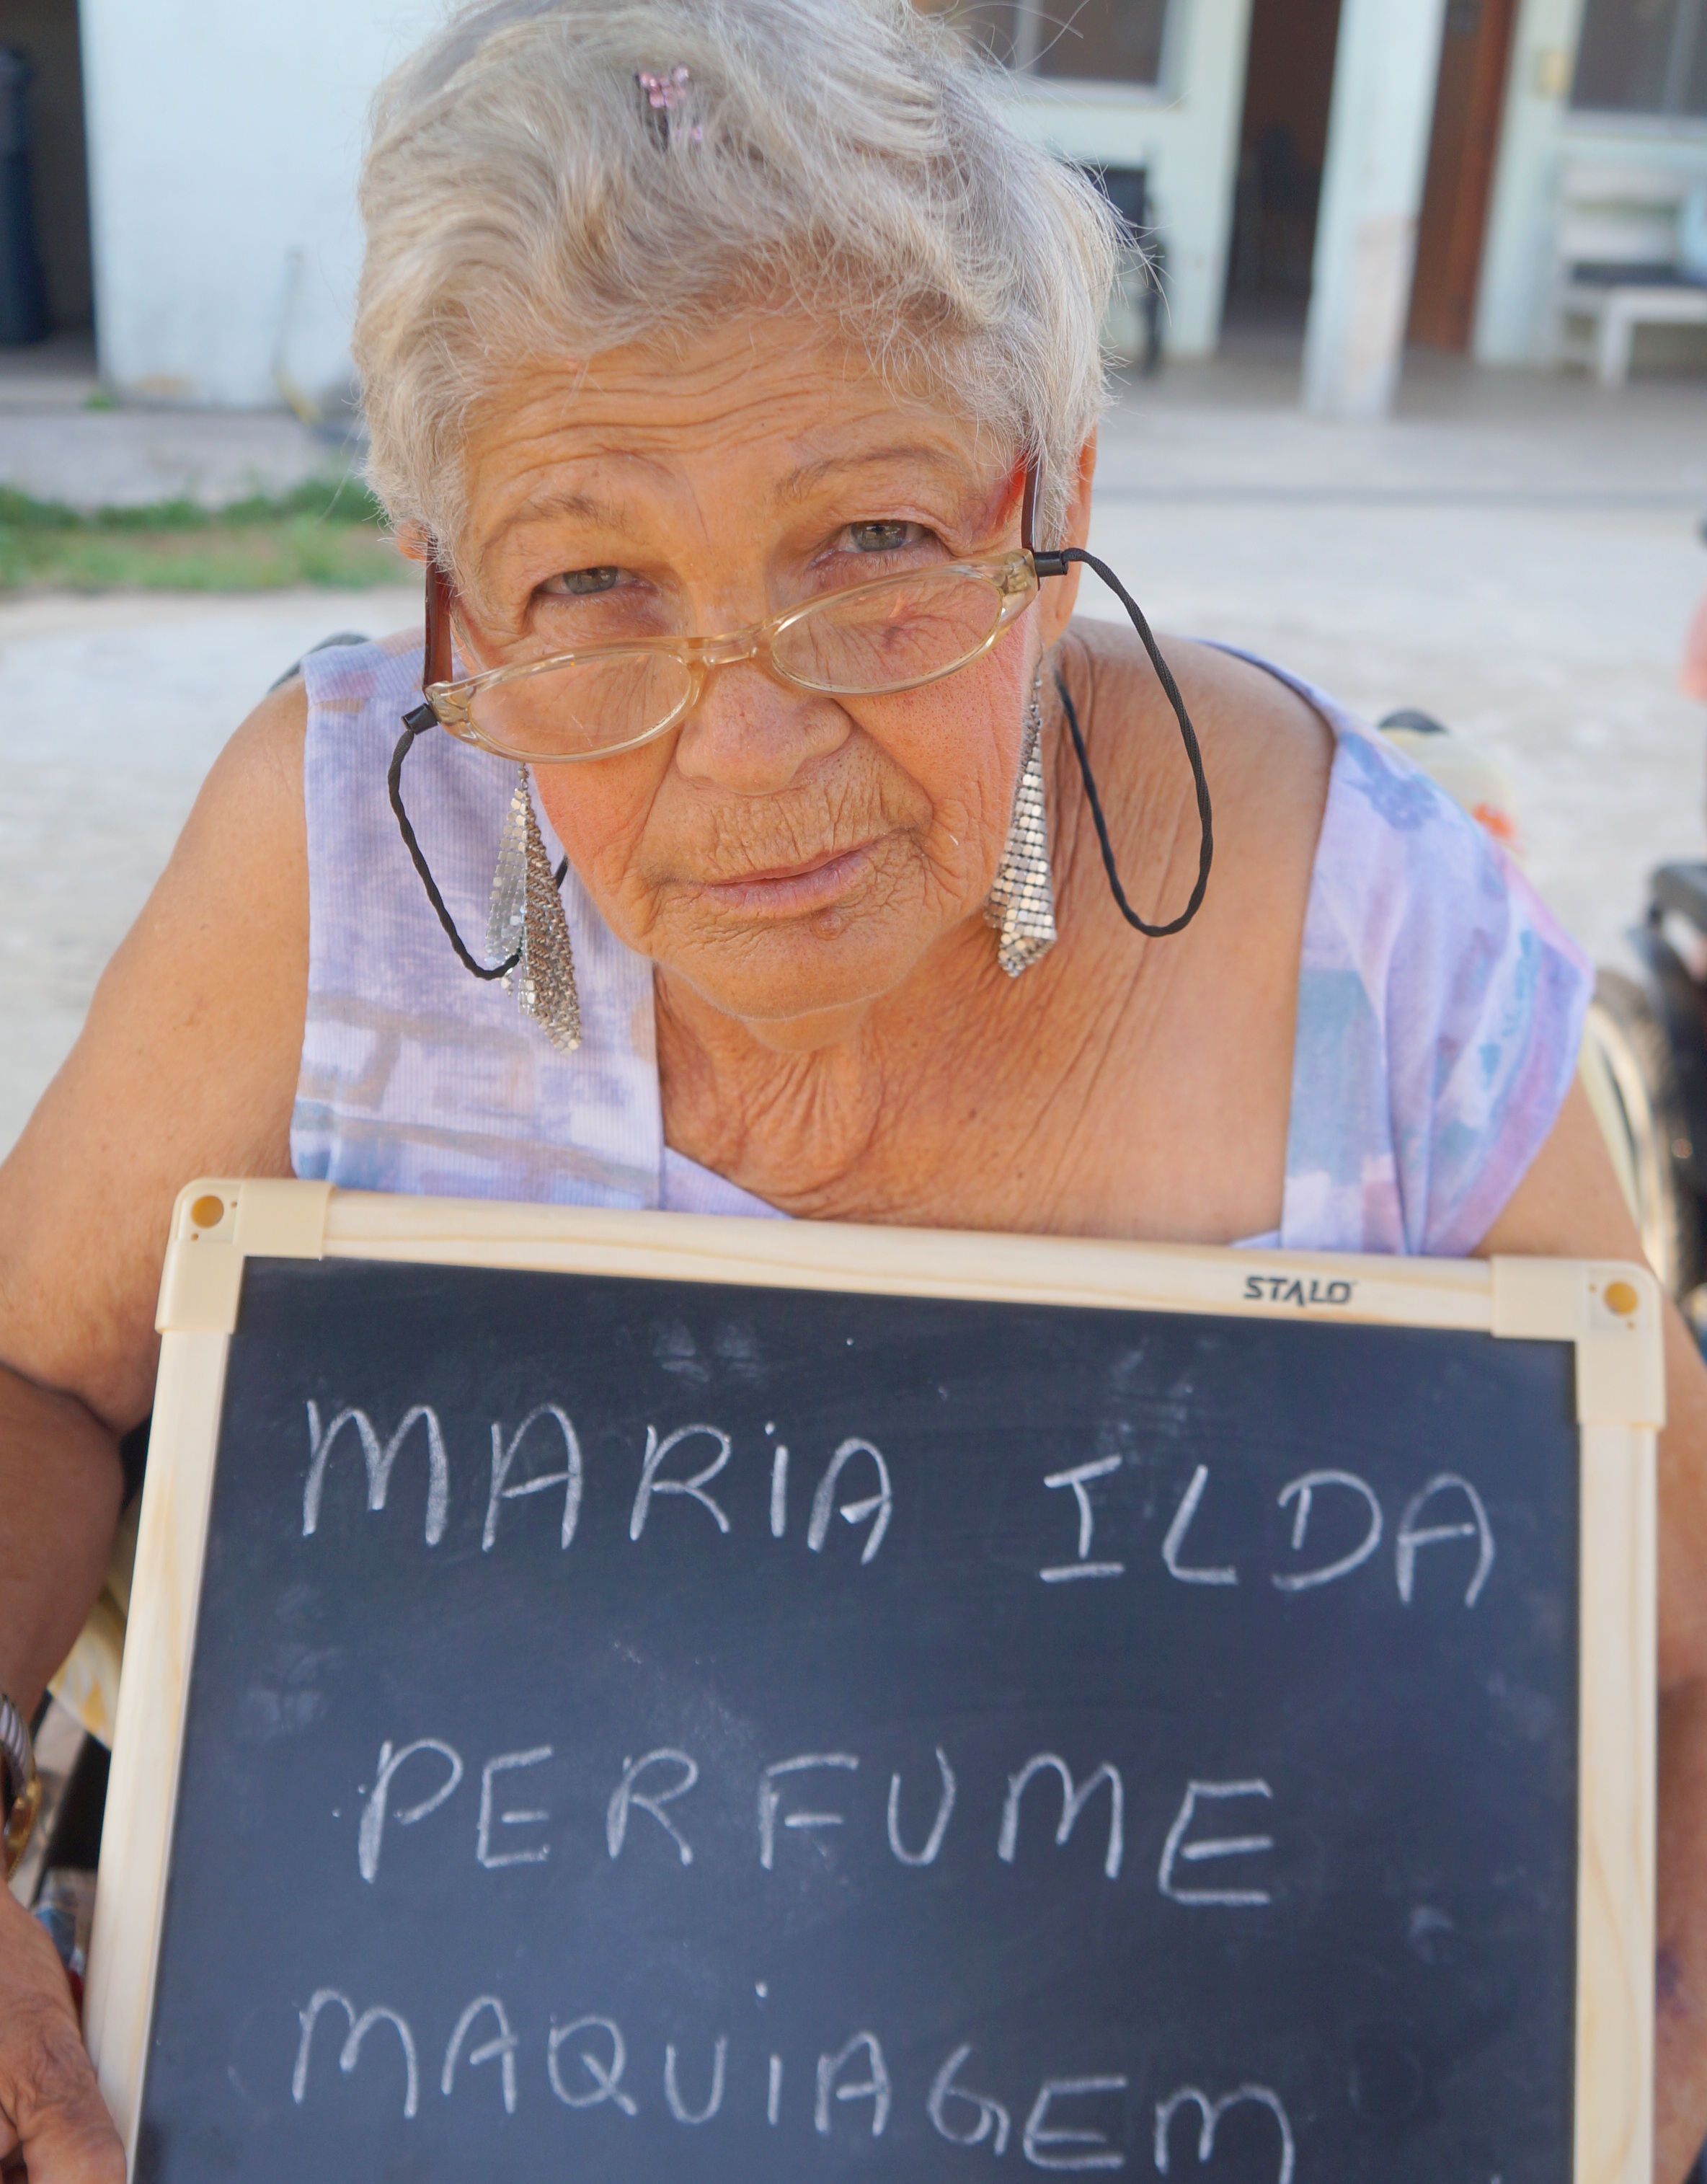 STALO
MARiA ILDA
PERFUME
MAQUiAGEM